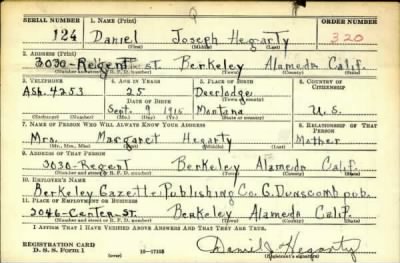 SERIAL NUMBER 1. NAME (Print) ORDER NUMBER
124 Daniel Joseph Hegarty 320
(First) (Middle) (Last)
2. ADDRESS (Print)
3030-Regent st. Berkeley Alameda Calif.
(Number and street or R. F. D. number) (Town) (County) (State)
3. TELEPHONE 4. AGE IN YEARS 5. PLACE OF BIRTH 6. COUNTRY OF CITIZENSHIP
Ash. 4253 25 Deerlodge
DATE OF BIRTH (Town or county)
Sept. 9 1915 Montana U.S.
(Exchange) (Number) (Mo.) (Day) (Yr.) (State or country)
7. NAME OF PERSON WHO WILL ALWAYS KNOW YOUR ADDRESS 8. RELATIONSHIP OF THAT PERSON
Mrs. Margaret Hegarty Mother
(Mr., Mrs., Miss) (First) (Middle) (Last)
9. ADDRESS OF THAT PERSON
3030-Regent Berkeley Alameda Calif.
(Number and street or R. F. D. number) (Town) (County) (State)
10. EMPLOYER'S NAME
Berkeley Gazette Publishing Co. G. Dunscomb pub.
11. PLACE OF EMPLOYMENT OR BUSINESS
2046-Center-St. Berkeley Alameda Calif.
(Number and street or R. F. D. number) (Town) (County) (State)
I AFFIRM THAT I HAVE VERIFIED ABOVE ANSWERS AND THAT THEY ARE TRUE.
REGISTRATION CARD
D. S. S. FORM 1 (over) 16-17105 Daniel J Hegarty
(Registrant's signature)